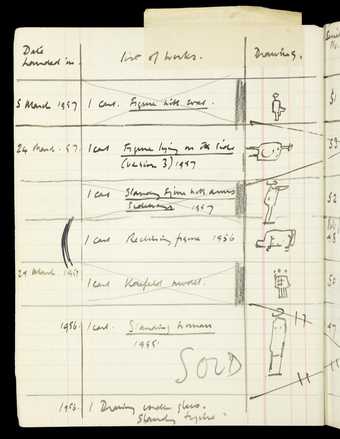 Date
handed in.
list of works.
Drawing.
5 March 1957
1 cast. Figure with
51
24 March. 57.
1 cast Figure lying on its side
(version 3) 1957
53
1 cast Standing figure with arms
Sideways 1957
52
1 cast Reclining figure 1956
29 March 1957
1 cast model.
50
1956.
1 cast. Standing woman
1955.
47
SOLD
1956.
1 Drawing under glass.
Standing